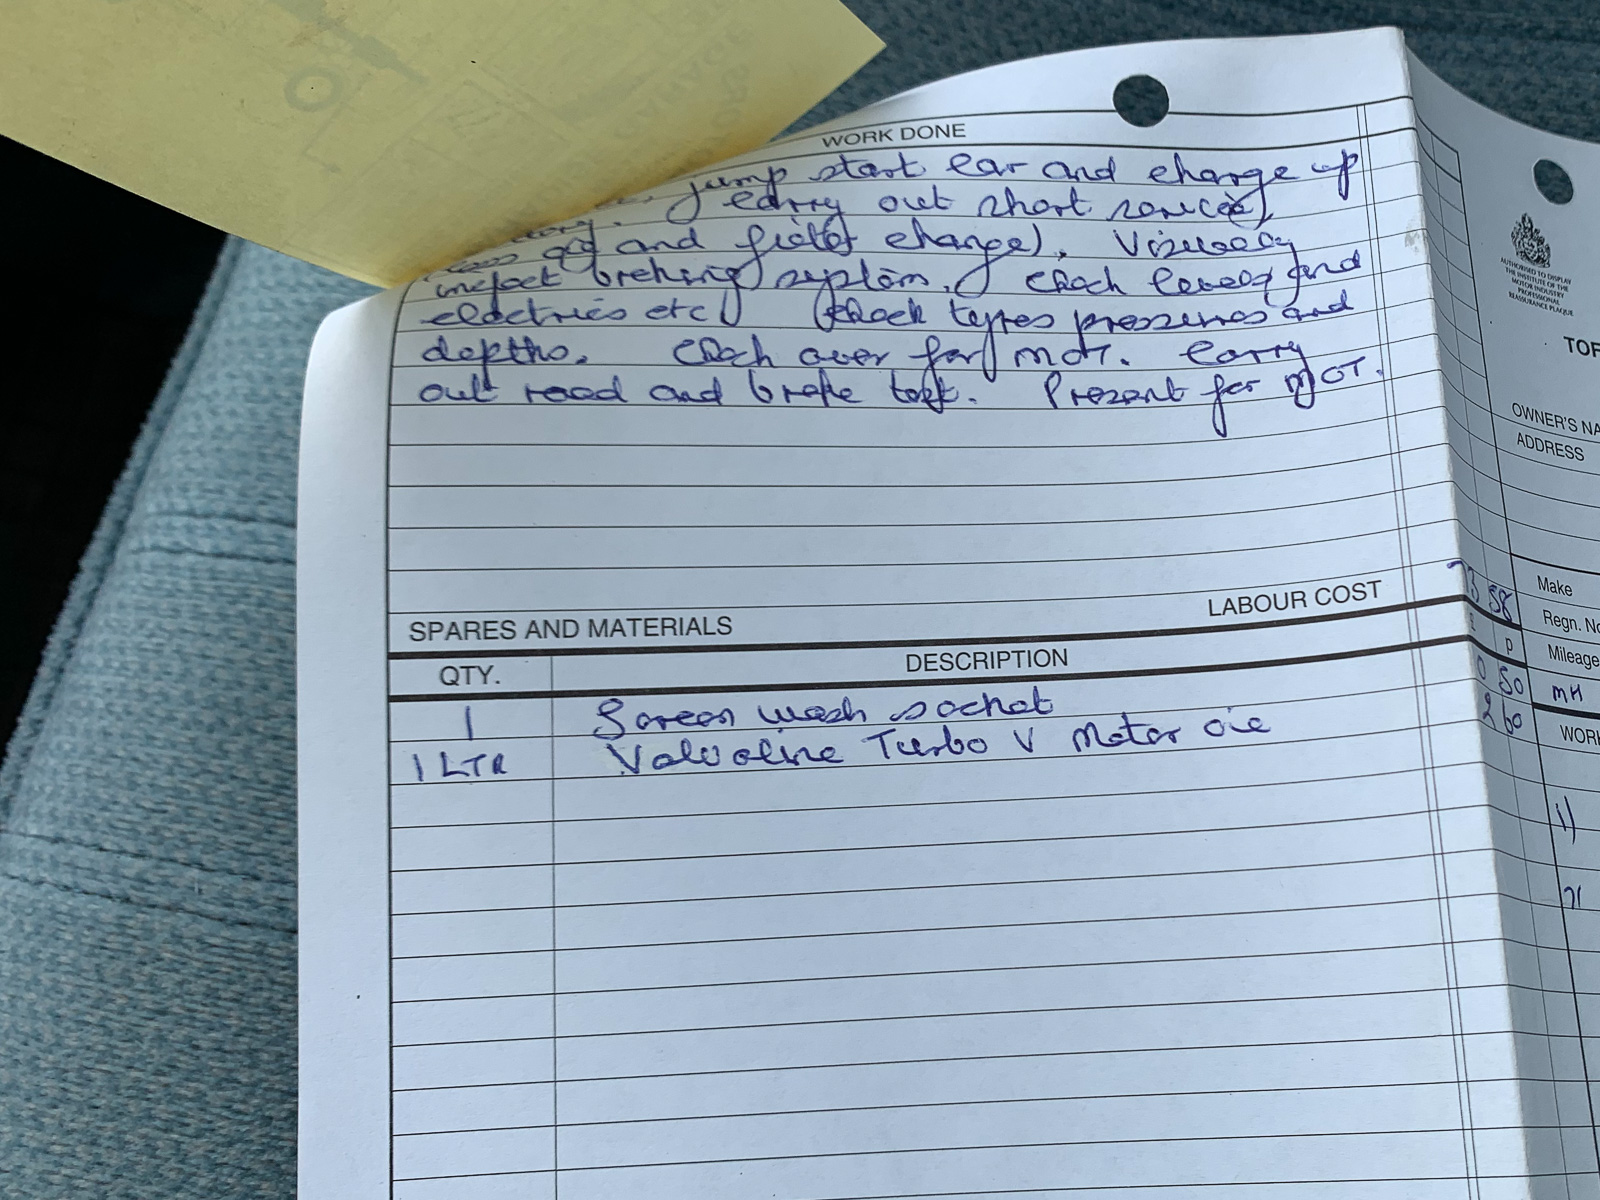 WORK DONE
jump start car and charge up
carry out short service
less oil and filter change). Visually
inspect braking system. Check levels and
electrics etc. Check tyres pressures and
depths. Check over for MOT. Carry
out road and brake test. Present for MOT.
LABOUR COST
73 58
SPARES AND MATERIALS
QTY. DESCRIPTION
p
1 Screen wash sachet
50
1 LTR Valvoline Turbo V Motor oil
2 60
AUTHORISED TO DISPLAY
THE INSTITUTE OF THE
MOTOR INDUSTRY
PROFESSIONAL
REASSURANCE PLAQUE
TOR
OWNER'S NA
ADDRESS
Make
Regn. No
Mileage
MH
WORK
1)